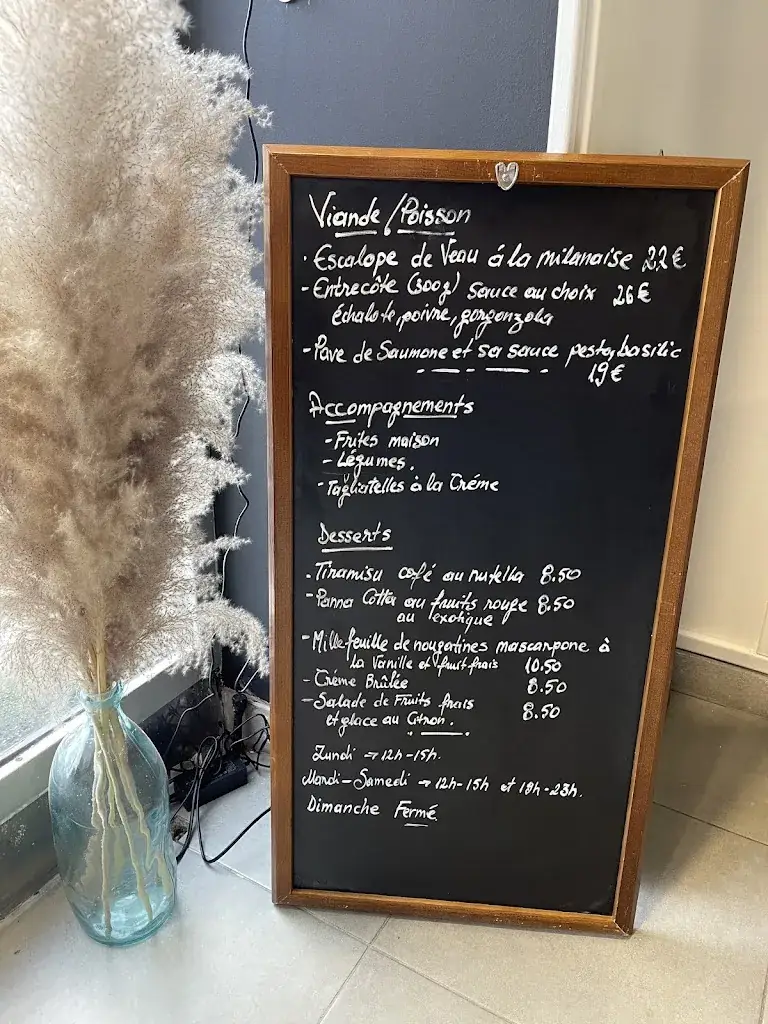 Viande/Poisson
· Escalope de Veau à la milanaise 22€
- Entrecôte (300g) sauce au choix 26€
échalote, poivre, gorgonzola
- Pave de Saumone et sa sauce pesto, basilic
19€
Accompagnements
- Frites maison
- Légumes.
- Tagliatelles à la Créme
Desserts
- Tiramisu café ou nutella 8.50
- Panna Cotta au fruits rouge 8.50
au exotique
- Mille feuille de nougatines mascarpone à
la Vanille et fruit frais 10.50
- Créme Brûlée 8.50
- Salade de Fruits frais 8.50
et glace au Citron.
Lundi → 12h-15h.
Mardi-Samedi → 12h-15h et 19h-23h.
Dimanche Fermé